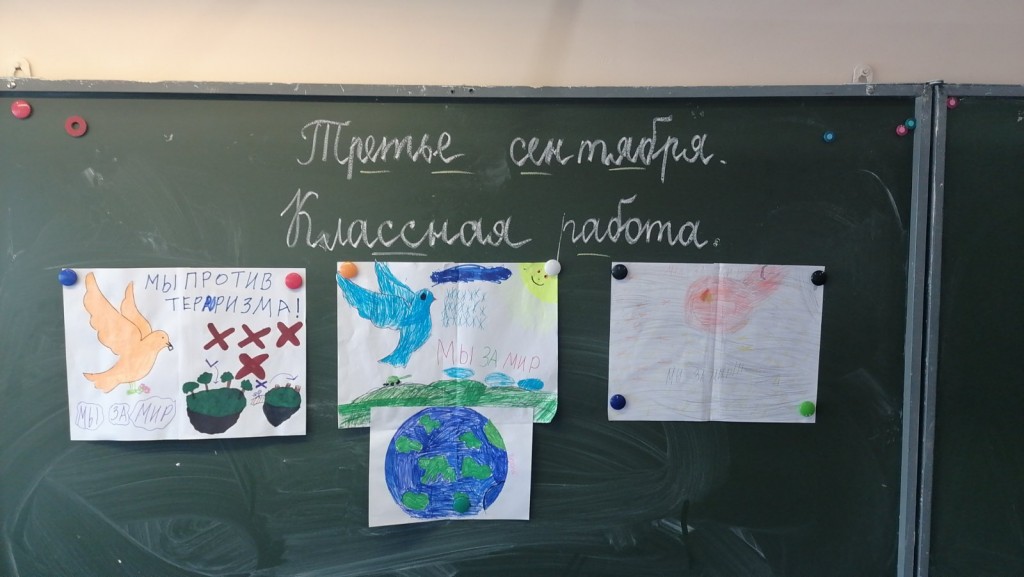 Третье сентября.
Классная работа.
МЫ ПРОТИВ
ТЕРРОРИЗМА!
МЫ ЗА МИР
МЫ ЗА МИР